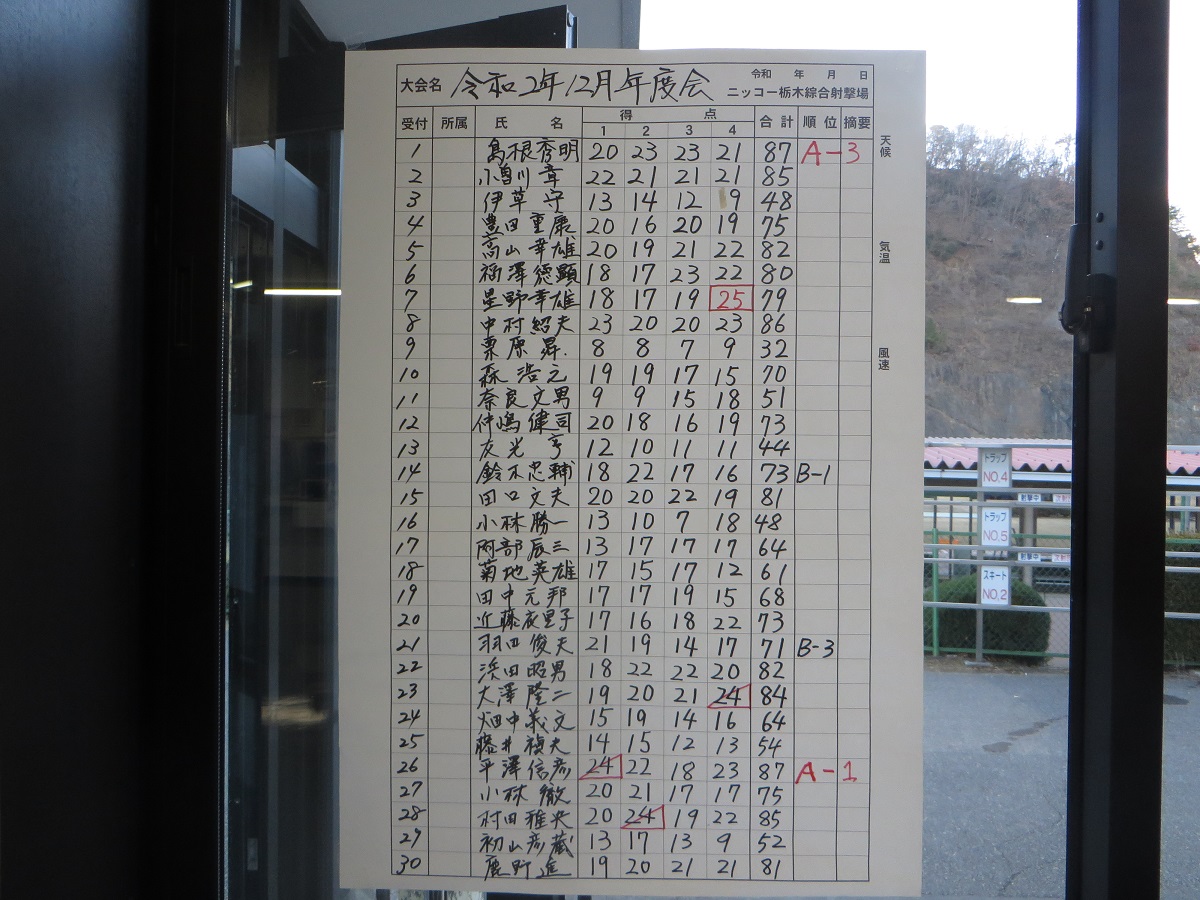 大会名 令和2年12月年度会 令和 年 月 日
ニッコー栃木綜合射撃場
受付 所属 氏 名 得 点 合計 順位 摘要
1 2 3 4
1 島根秀明 20 23 23 21 87 A-3
2 小曽川章 22 21 21 21 85
3 伊草守 13 14 12 9 48
4 豊田重廉 20 16 20 19 75
5 高山幸雄 20 19 21 22 82
6 福澤徳顕 18 17 23 22 80
7 星野幸雄 18 17 19 25 79
8 中村紹夫 23 20 20 23 86
9 栗原昇 8 8 7 9 32
10 森浩之 19 19 17 15 70
11 奈良文男 9 9 15 18 51
12 仲嶋健司 20 18 16 19 73
13 友光亨 12 10 11 11 44
14 鈴木忠輔 18 22 17 16 73 B-1
15 田口文夫 20 20 22 19 81
16 小林勝一 13 10 7 18 48
17 阿部辰三 13 17 17 17 64
18 菊地英雄 17 15 17 12 61
19 田中元邦 17 17 19 15 68
20 近藤衣里子 17 16 18 22 73
21 羽田俊夫 21 19 14 17 71 B-3
22 浜田昭男 18 22 22 20 82
23 大澤隆二 19 20 21 24 84
24 畑中義文 15 19 14 16 64
25 藤井禎夫 14 15 12 13 54
26 平澤信彦 24 22 18 23 87 A-1
27 小林徹 20 21 17 17 75
28 村田雅央 20 24 19 22 85
29 初山彦蔵 13 17 13 9 52
30 鹿野進 19 20 21 21 81
天候
気温
風速
トラップ
NO.4
トラップ
NO.5
スキート
NO.2